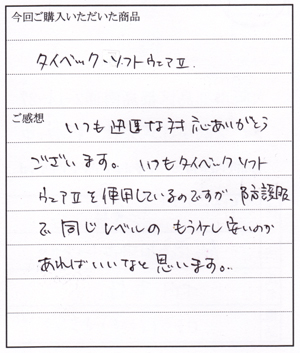 今回ご購入いただいた商品
タイベック・ソフトウェアⅡ.
ご感想
いつも迅速な対応ありがとう
ございます。いつもタイベックソフト
ウェアⅡを使用しているのですが、防護服
で同じレベルのもう少し安いのが
あればいいなと思います。